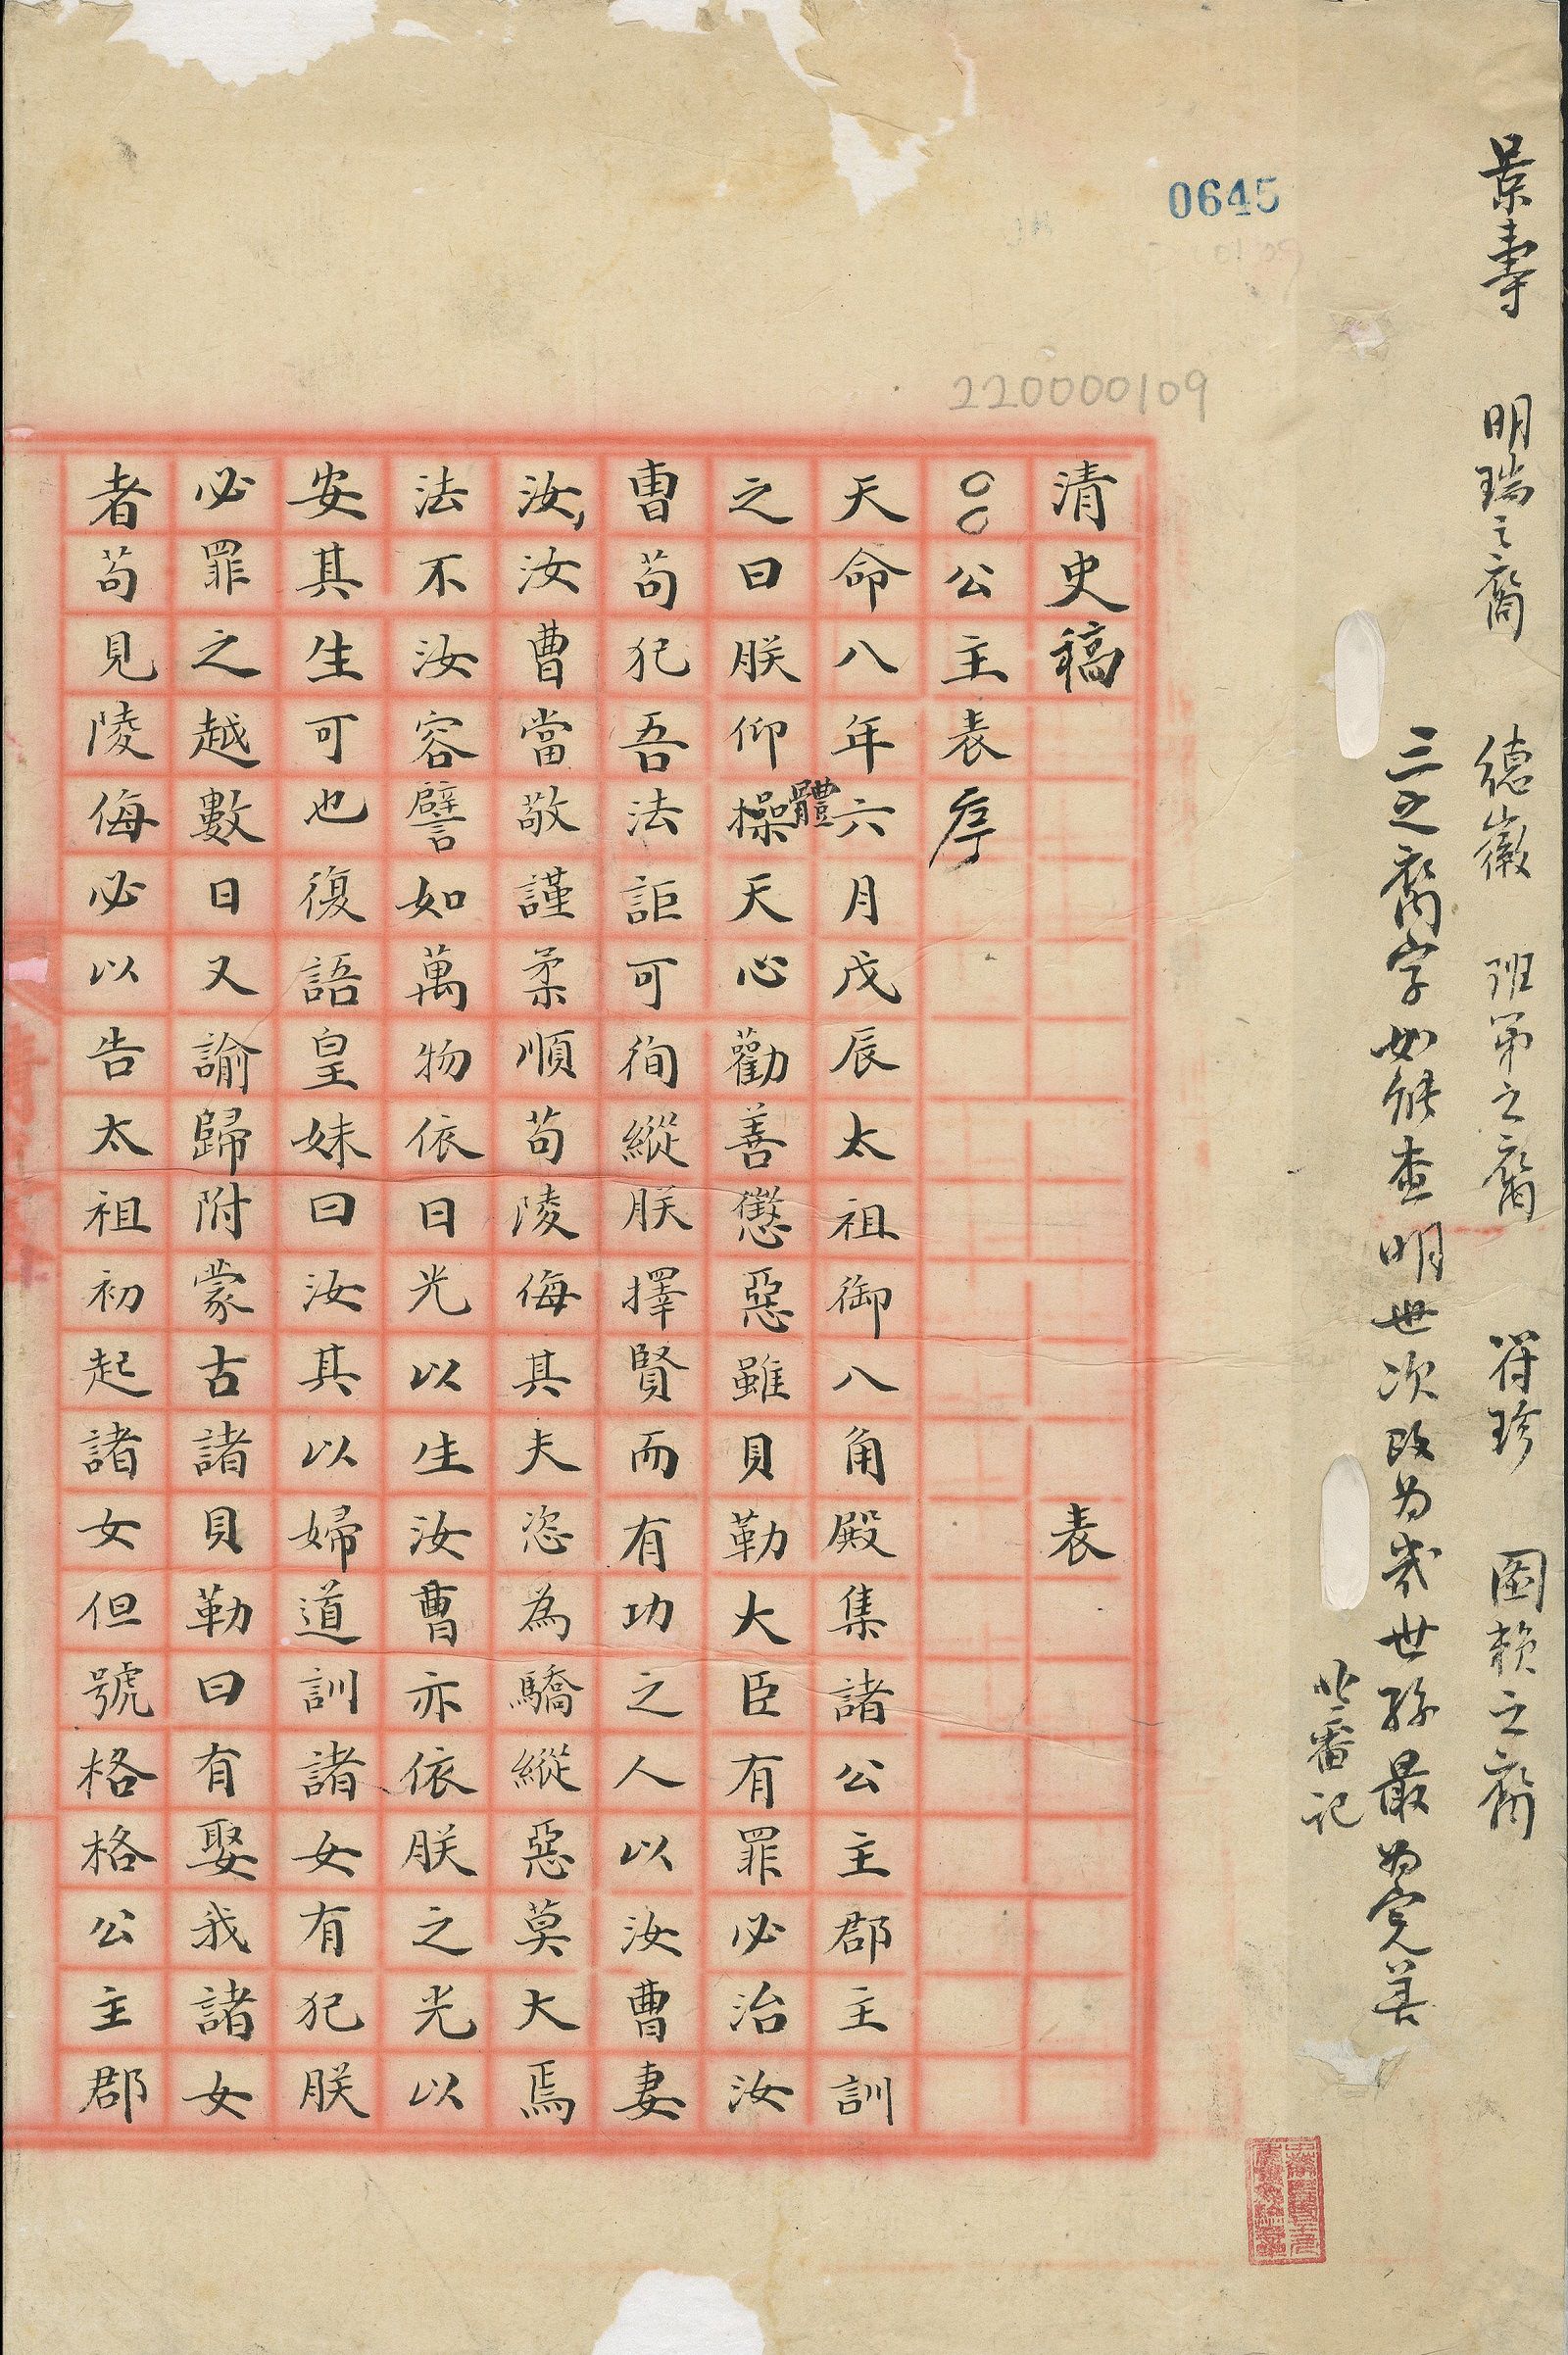 景壽　明瑞之裔　德徽　班第之裔　符珍　圖賴之裔
三之裔字如能查明世次改为幾世孫最为完美
番记
0645
220000109
清史稿　表
○○公主表序
天命八年六月戊辰太祖御八角殿集諸公主郡主訓
之曰朕仰操天心勸善懲惡雖貝勒大臣有罪必治汝
體
曹苟犯吾法詎可徇縱朕擇賢而有功之人以汝曹妻
汝,汝曹當敬謹柔順苟陵侮其夫恣為驕縱惡莫大焉
法不汝容譬如萬物依日光以生汝曹亦依朕之光以
安其生可也復語皇妹曰汝其以婦道訓諸女有犯朕
必罪之越數日又諭歸附蒙古諸貝勒曰有娶我諸女
者苟見陵侮必以告太祖初起諸女但號格格公主郡